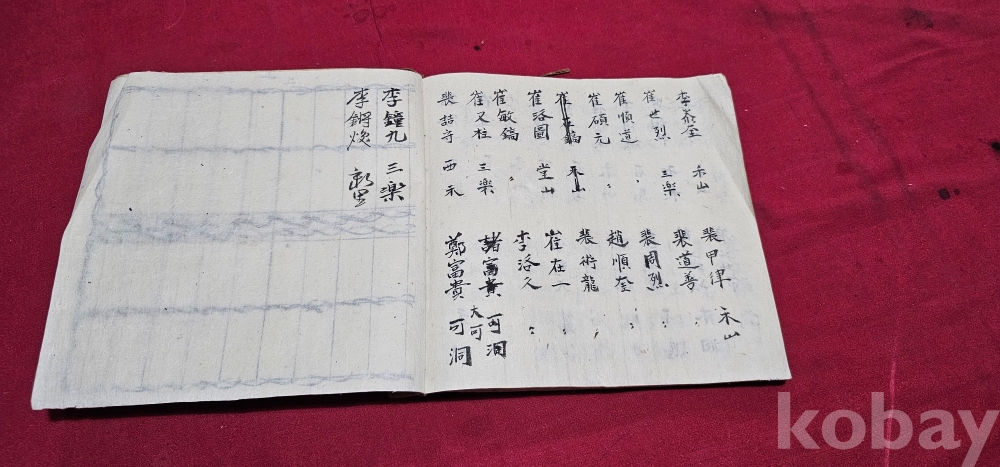 李泰奎 禾山
崔世烈 三樂
崔順道 〃
崔碩元 〃
崔在鎬 禾山
崔洛圖 堂山
崔敏鎬 〃
崔又柱 三樂
裵喆守 西禾
裵甲律 禾山
裵道善 〃
裵周烈 〃
趙順奎 〃
裵術龍 〃
崔在一 〃
李洛久 〃
諸富貴 大可 可洞
鄭富貴 可洞
李鐘九 三樂
李鏘煥 新里
kobay